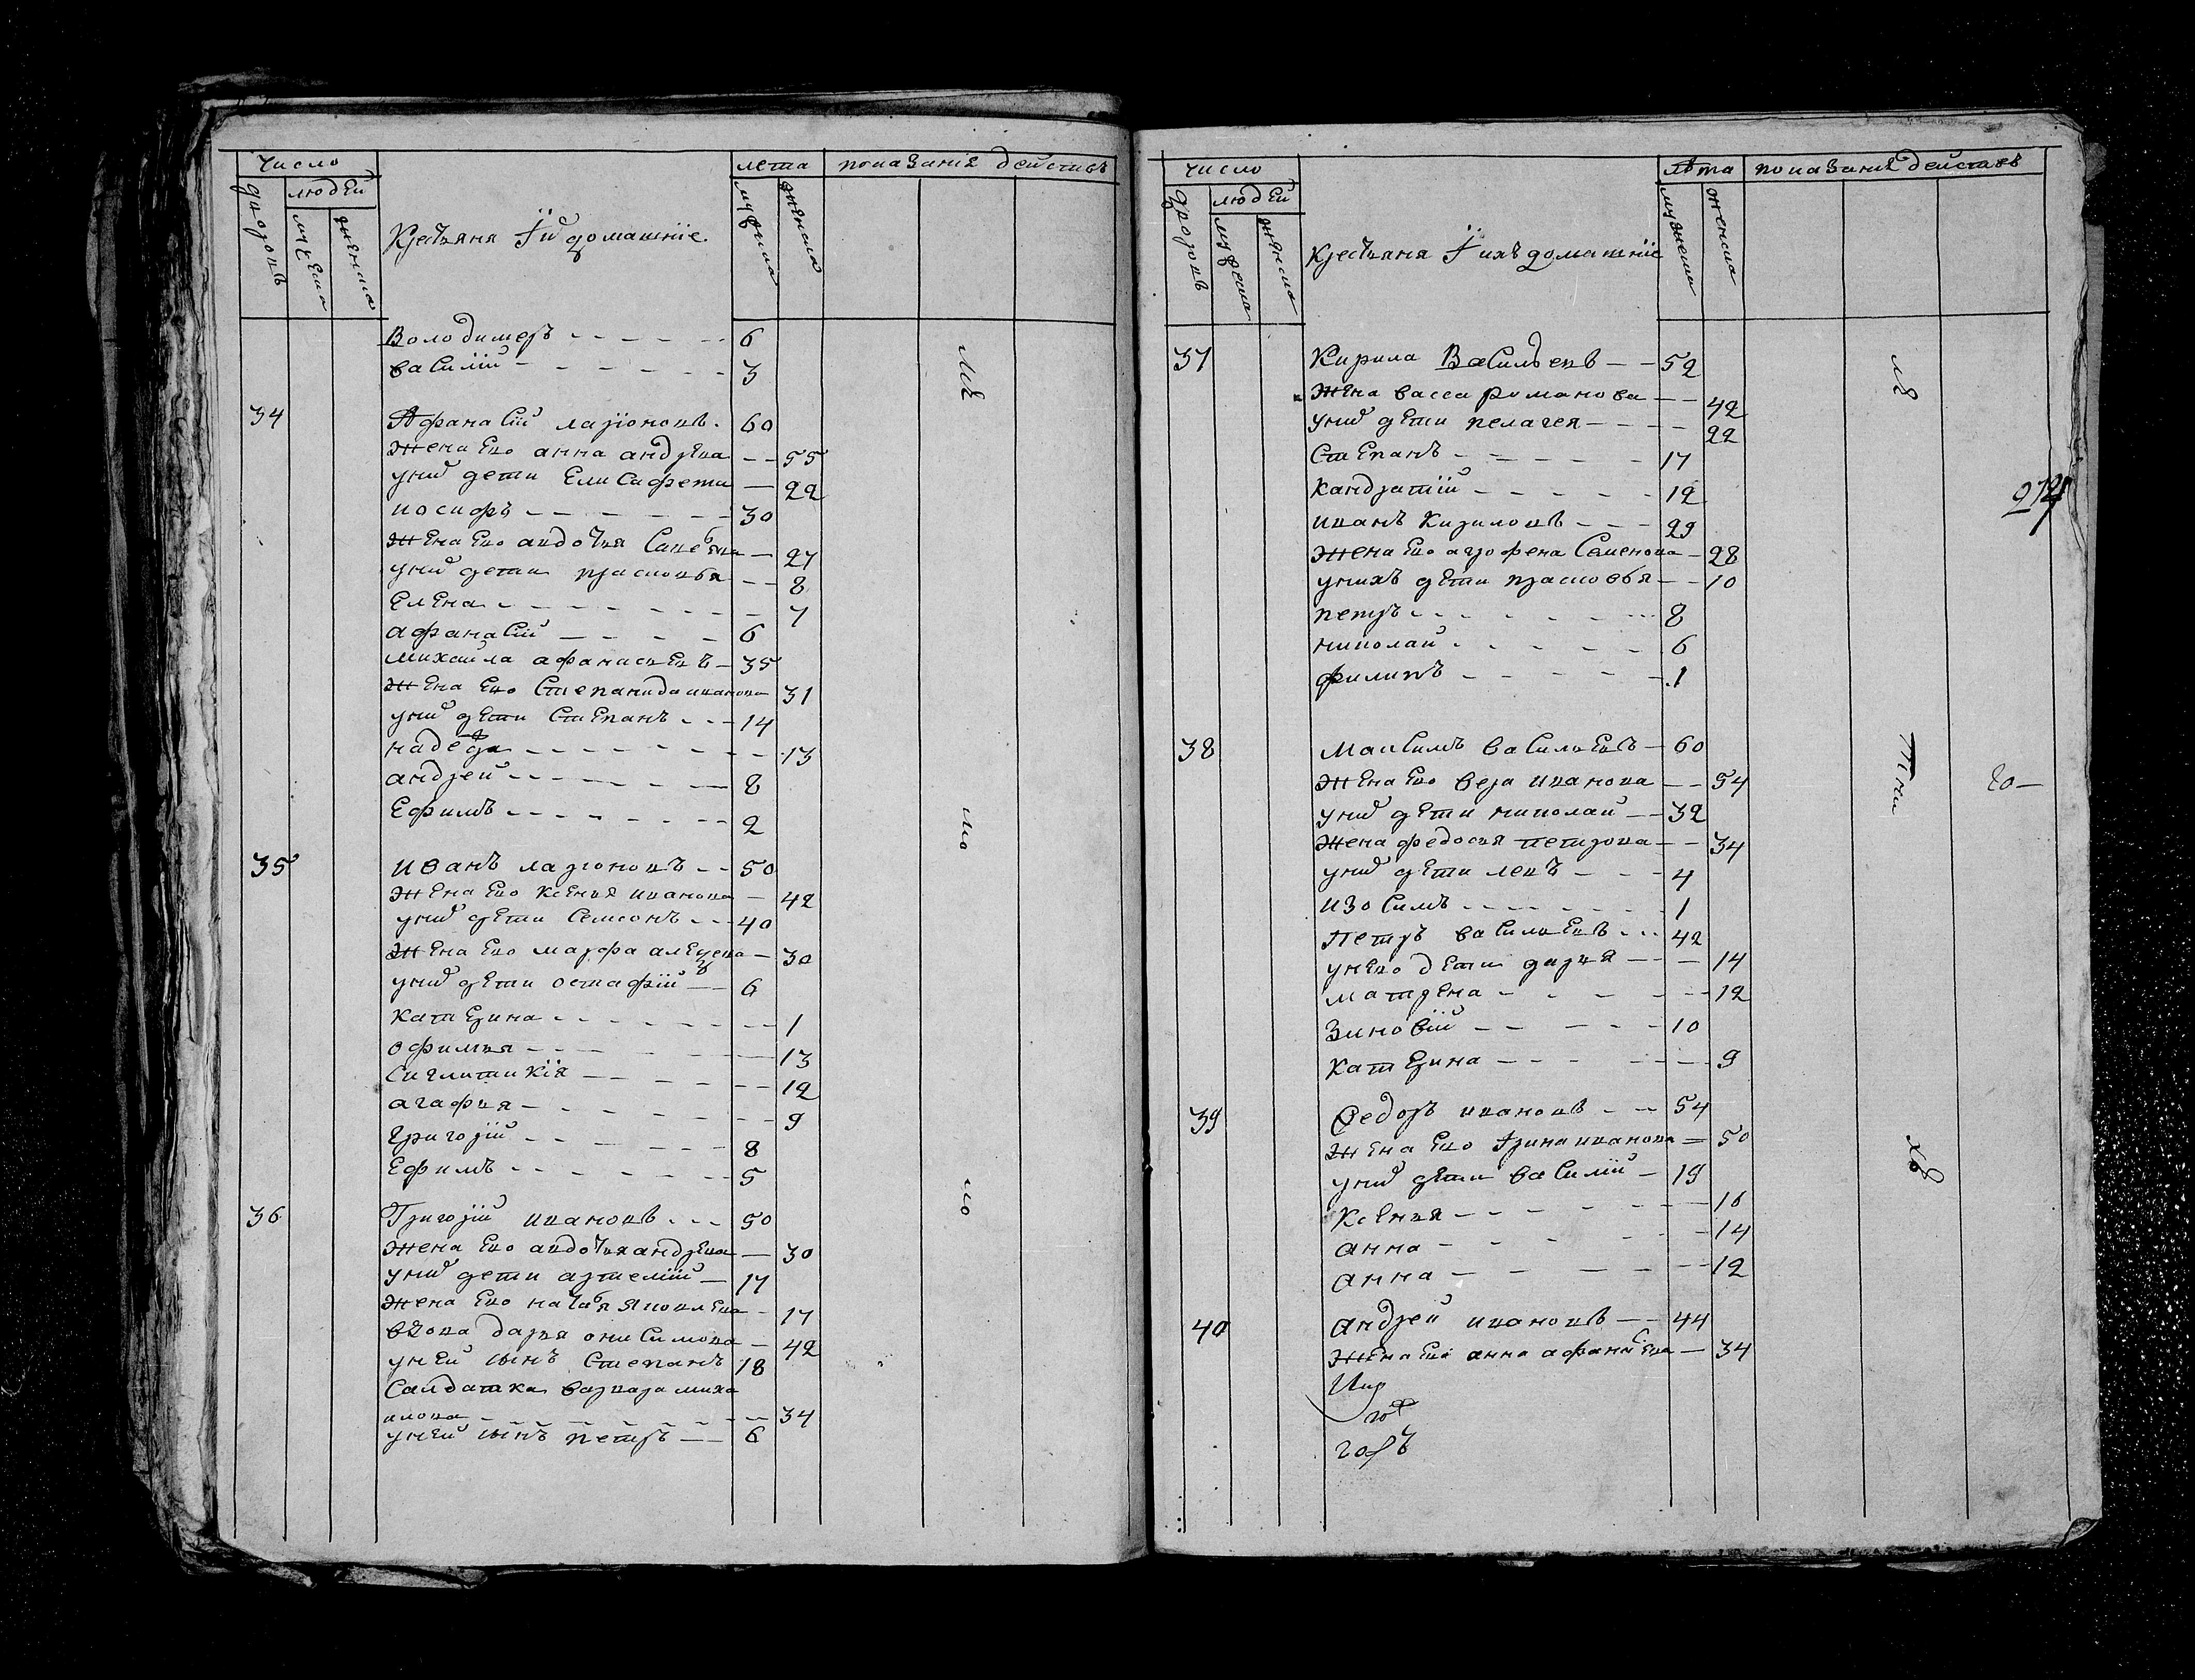 число
людей
дворовъ
мужеска
женска
Крестьяня Їи домашнїе
лета
мужеска
женска
показания действъ
Володимеръ 6
василїй 3
34 Афанасїй ларїоновъ 60
Жена Ево анна андрѣева 55
уних дети Елисафети 22
иосифъ 30
Жена Ево авдотья Савебяна 27
уних дети прасковья 8
Елена 7
афанасїй 6
михайла афанасьевъ 35
Жена Ево Степанида иванова 31
уних дети Степанъ 14
надежда 13
андрей 8
Ефимъ 2
35 иванъ ларионовъ 50
Жена Ево ксенья иванова 42
уних дети Семсонъ 40
Жена Ево марфа алеѯеева 30
уних дети остафїй 6
катерина 1
офимья 13
Сиглитикїя 12
агафья 9
Григорїй 8
Ефимъ 5
36 Григорїй ивановъ 50
Жена Ево авдотья андреева 30
уних дети артемїй 17
Жена Ево наталья яковлева 17
вдова дарья онисимова 42
уней сынъ Степанъ 18
Салдатка варвара миха
илова 34
уней сынъ петръ 6
число
людей
дворовъ
мужеска
женска
Крестьяня Їихъ домашнїе
лѣта
мужеска
женска
показания действъ
37 Кирила Васильевъ 52
Жена васса романова 42
уних дети пелагея 22
Степанъ 17
кандратїй 12
иванъ Кириловъ 29
Жена Ево агрофена Семенова 28
унихъ дети прасковья 10
петръ 8
николай 6
филипъ 1
38 Максимъ васильевъ 60
Жена Ево вера иванова 54
уних дети николай 32
Жена федосья петрова 34
уних дети левъ 4
изосимъ 1
Петръ васильевъ 42
унево дети дарья 14
матрена 12
зиновїй 10
катерина 9
39 Ѳедоръ ивановъ 54
Жена Ево Їрина иванова 50
уних дети василїй 19
Ксенья 16
анна 14
анна 12
40 андрей ивановъ 44
Жена Ево анна афанасева 34